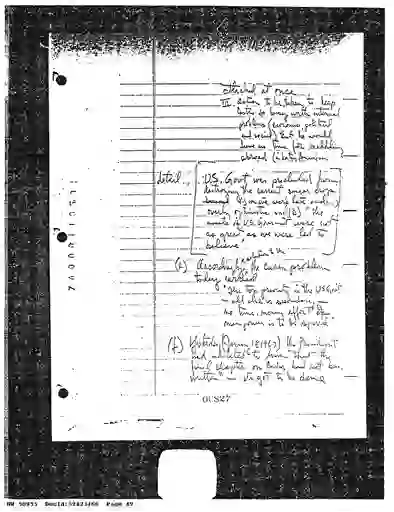 attached at once
III. action to be taken to keep
Castro so busy with internal
problems (economic, political
and social) that he would
have no time for meddling
abroad
detail...
U.S. Govt was precluded from
destroying the current sugar crop
(1) we were late and
overly optimistic and (2) "the
assets of the U.S. Govt were not
as great as we were led to
believe"
(e) Accordingly, the Cuban problem
today carried
"the top priority in the US Govt
— all else is secondary —
no time, money, effort or
manpower is to be spared."
(f) Yesterday (Jan 18 1962) the President
had indicated to him that the
final chapter on Cuba had not been
written — it's got to be done
00827
HW 50955 DocId:32423466 Page 87